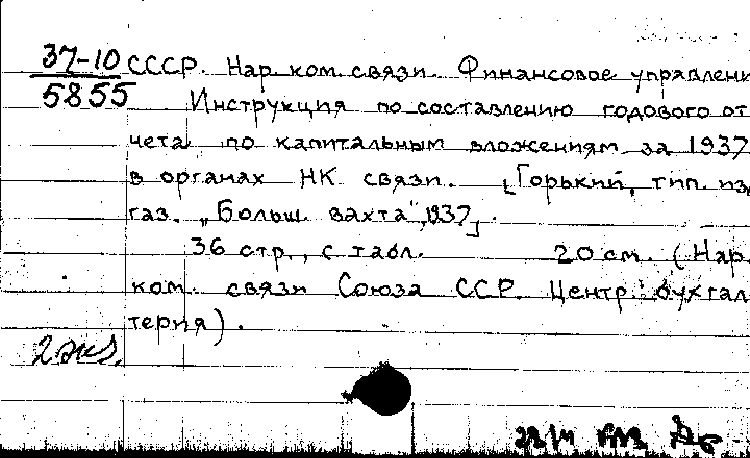 37-10 СССР. Нар. ком. связи. Финансовое управлени
5855 Инструкция по составлению годового от
чета по капитальным вложениям за 1937
в органах НК связи. [Горький, тип. из
газ. „Больш. вахта", 1937].
36 стр., с табл. 20 см. (Нар.
ком. связи Союза ССР. Центр. бухгал
терия).
2 экз.